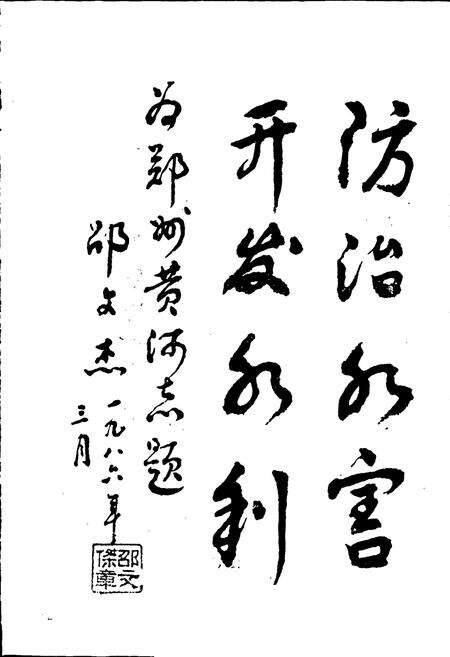 防治水害
开发水利
为郑州黄河志题
邵文杰
一九八六年
三月
邵文
傑章